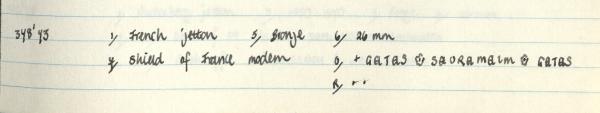 348'43 1, French jetton 5, Bronze 6, 26 mm
4, Shield of France modern 0, + GATAS ⚜ SAORAMAIM ⚜ GATAS
R, " "